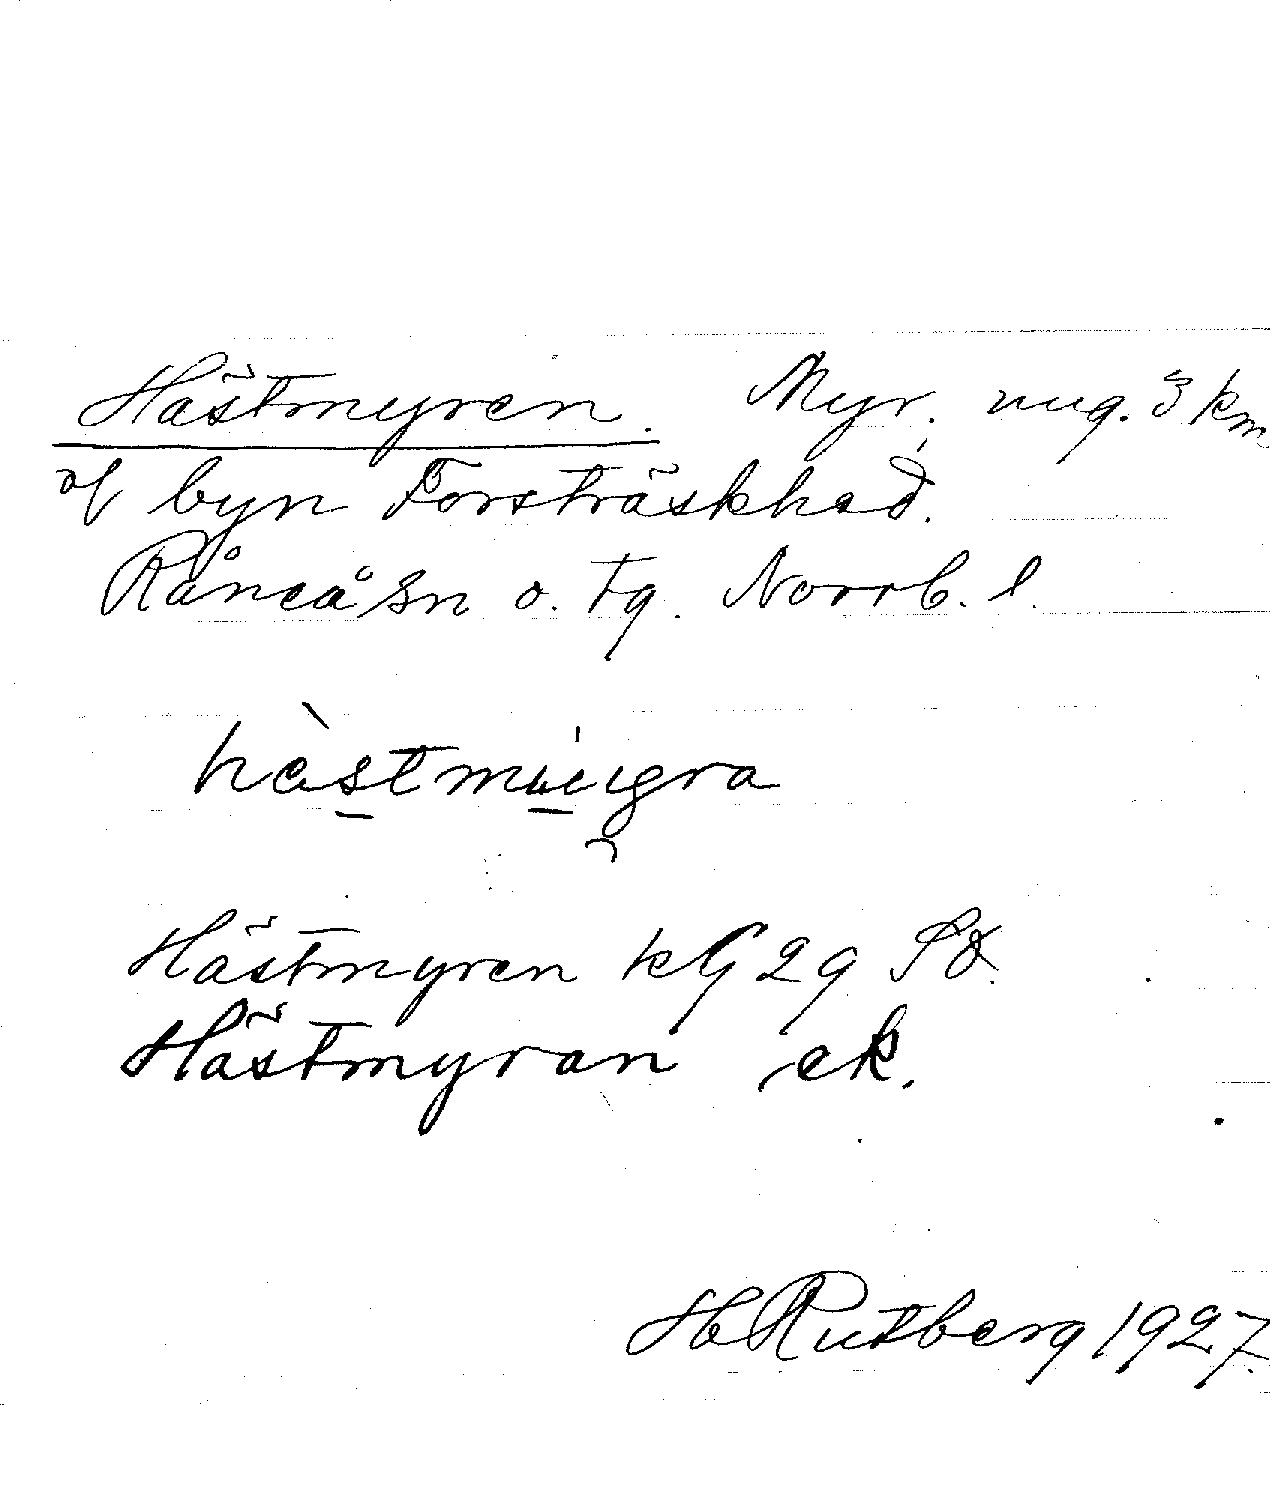 Hästmyren. Myr, ung. 3 km
af byn Forsträskhed.
Råneå sn o. tg. Norrb. l.
Hästmyren kG 29 SO.
Hästmyran ek.
H Rutberg 1927.